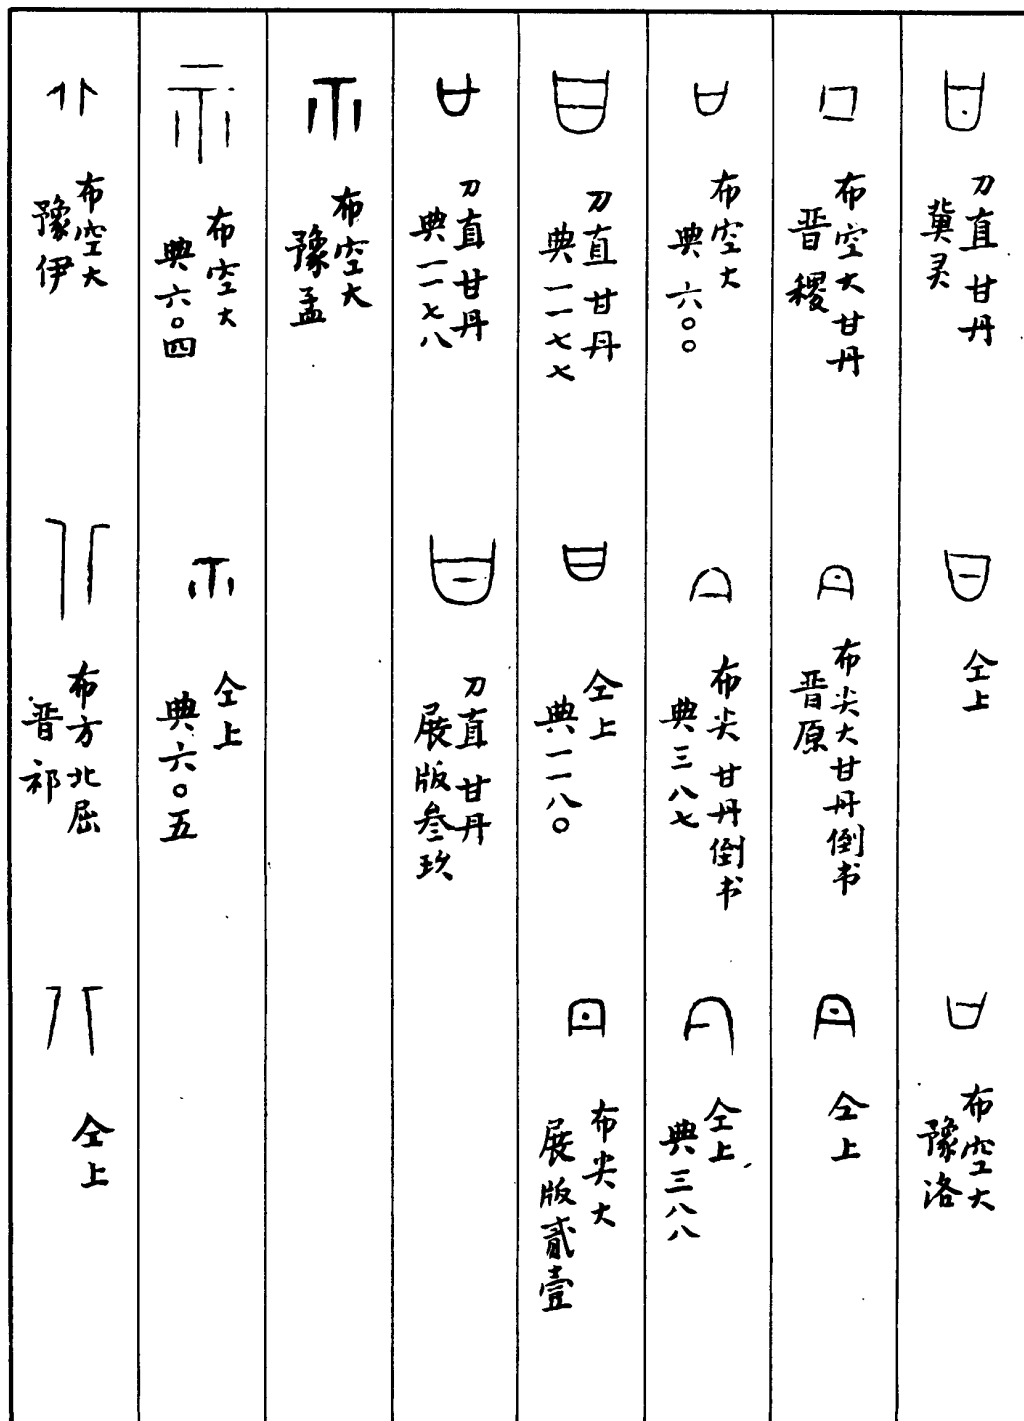 刀直甘丹
冀灵
仝上
布空大
豫洛
布空大甘丹
晋稷
布尖大甘丹倒书
晋原
仝上
布空大
典六〇〇
布尖甘丹倒书
典三八七
仝上
典三八八
刀直甘丹
典一一七七
仝上
典一一八〇
布尖大
展版贰壹
刀直甘丹
典一一七八
刀直甘丹
展版叁玖
布空大
豫孟
布空大
典六〇四
仝上
典六〇五
布空大
豫伊
布方北屈
晋祁
仝上